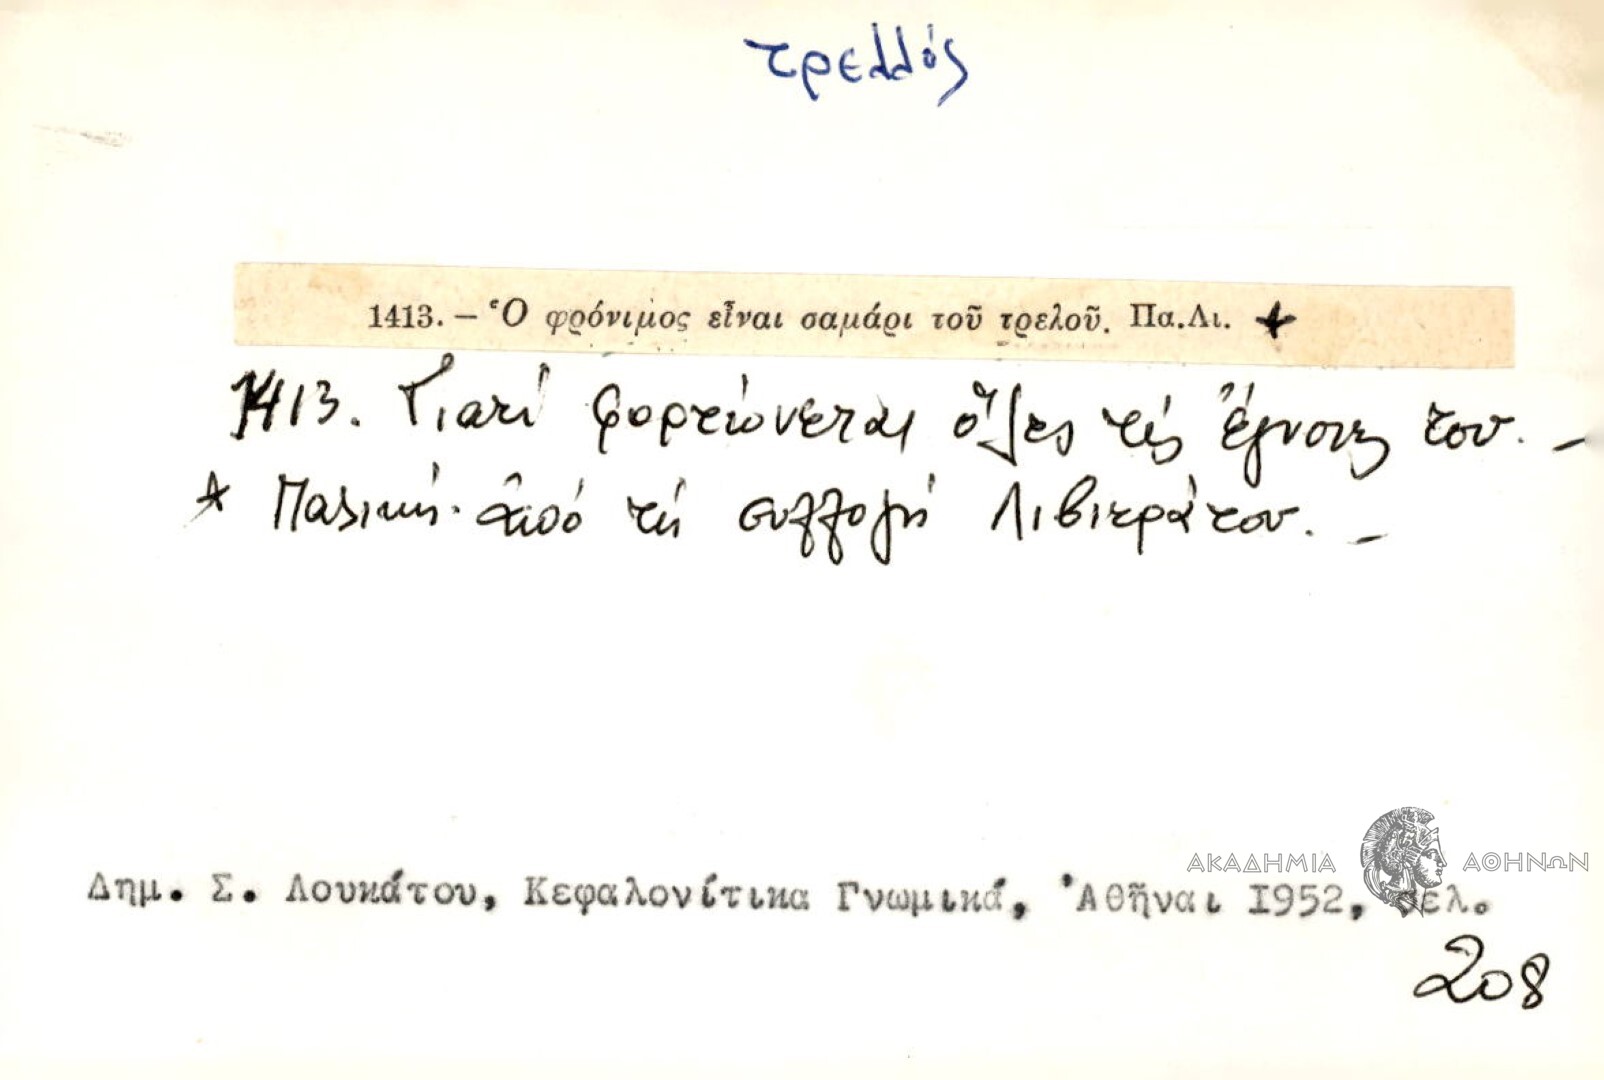 τρελλός
1413. – Ὁ φρόνιμος εἶναι σαμάρι τοῦ τρελοῦ. Πα.Λι. *
1413. Γιατί φορτώνεται ὅλες τίς ἔγνοιες του. –
* Παλική. ἀπό τή συλλογή Λιβιεράτου. –
ΑΚΑΔΗΜΙΑ ΑΘΗΝΩΝ
Δημ. Σ. Λουκάτου, Κεφαλονίτικα Γνωμικά, Ἀθῆναι 1952, σελ.
208